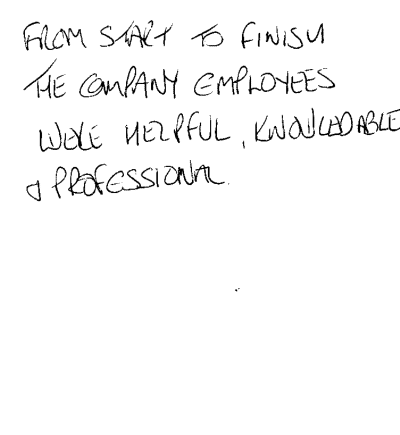 FROM START TO FINISH
THE COMPANY EMPLOYEES
WERE HELPFUL, KNOWLEDABLE
& PROFESSIONAL.